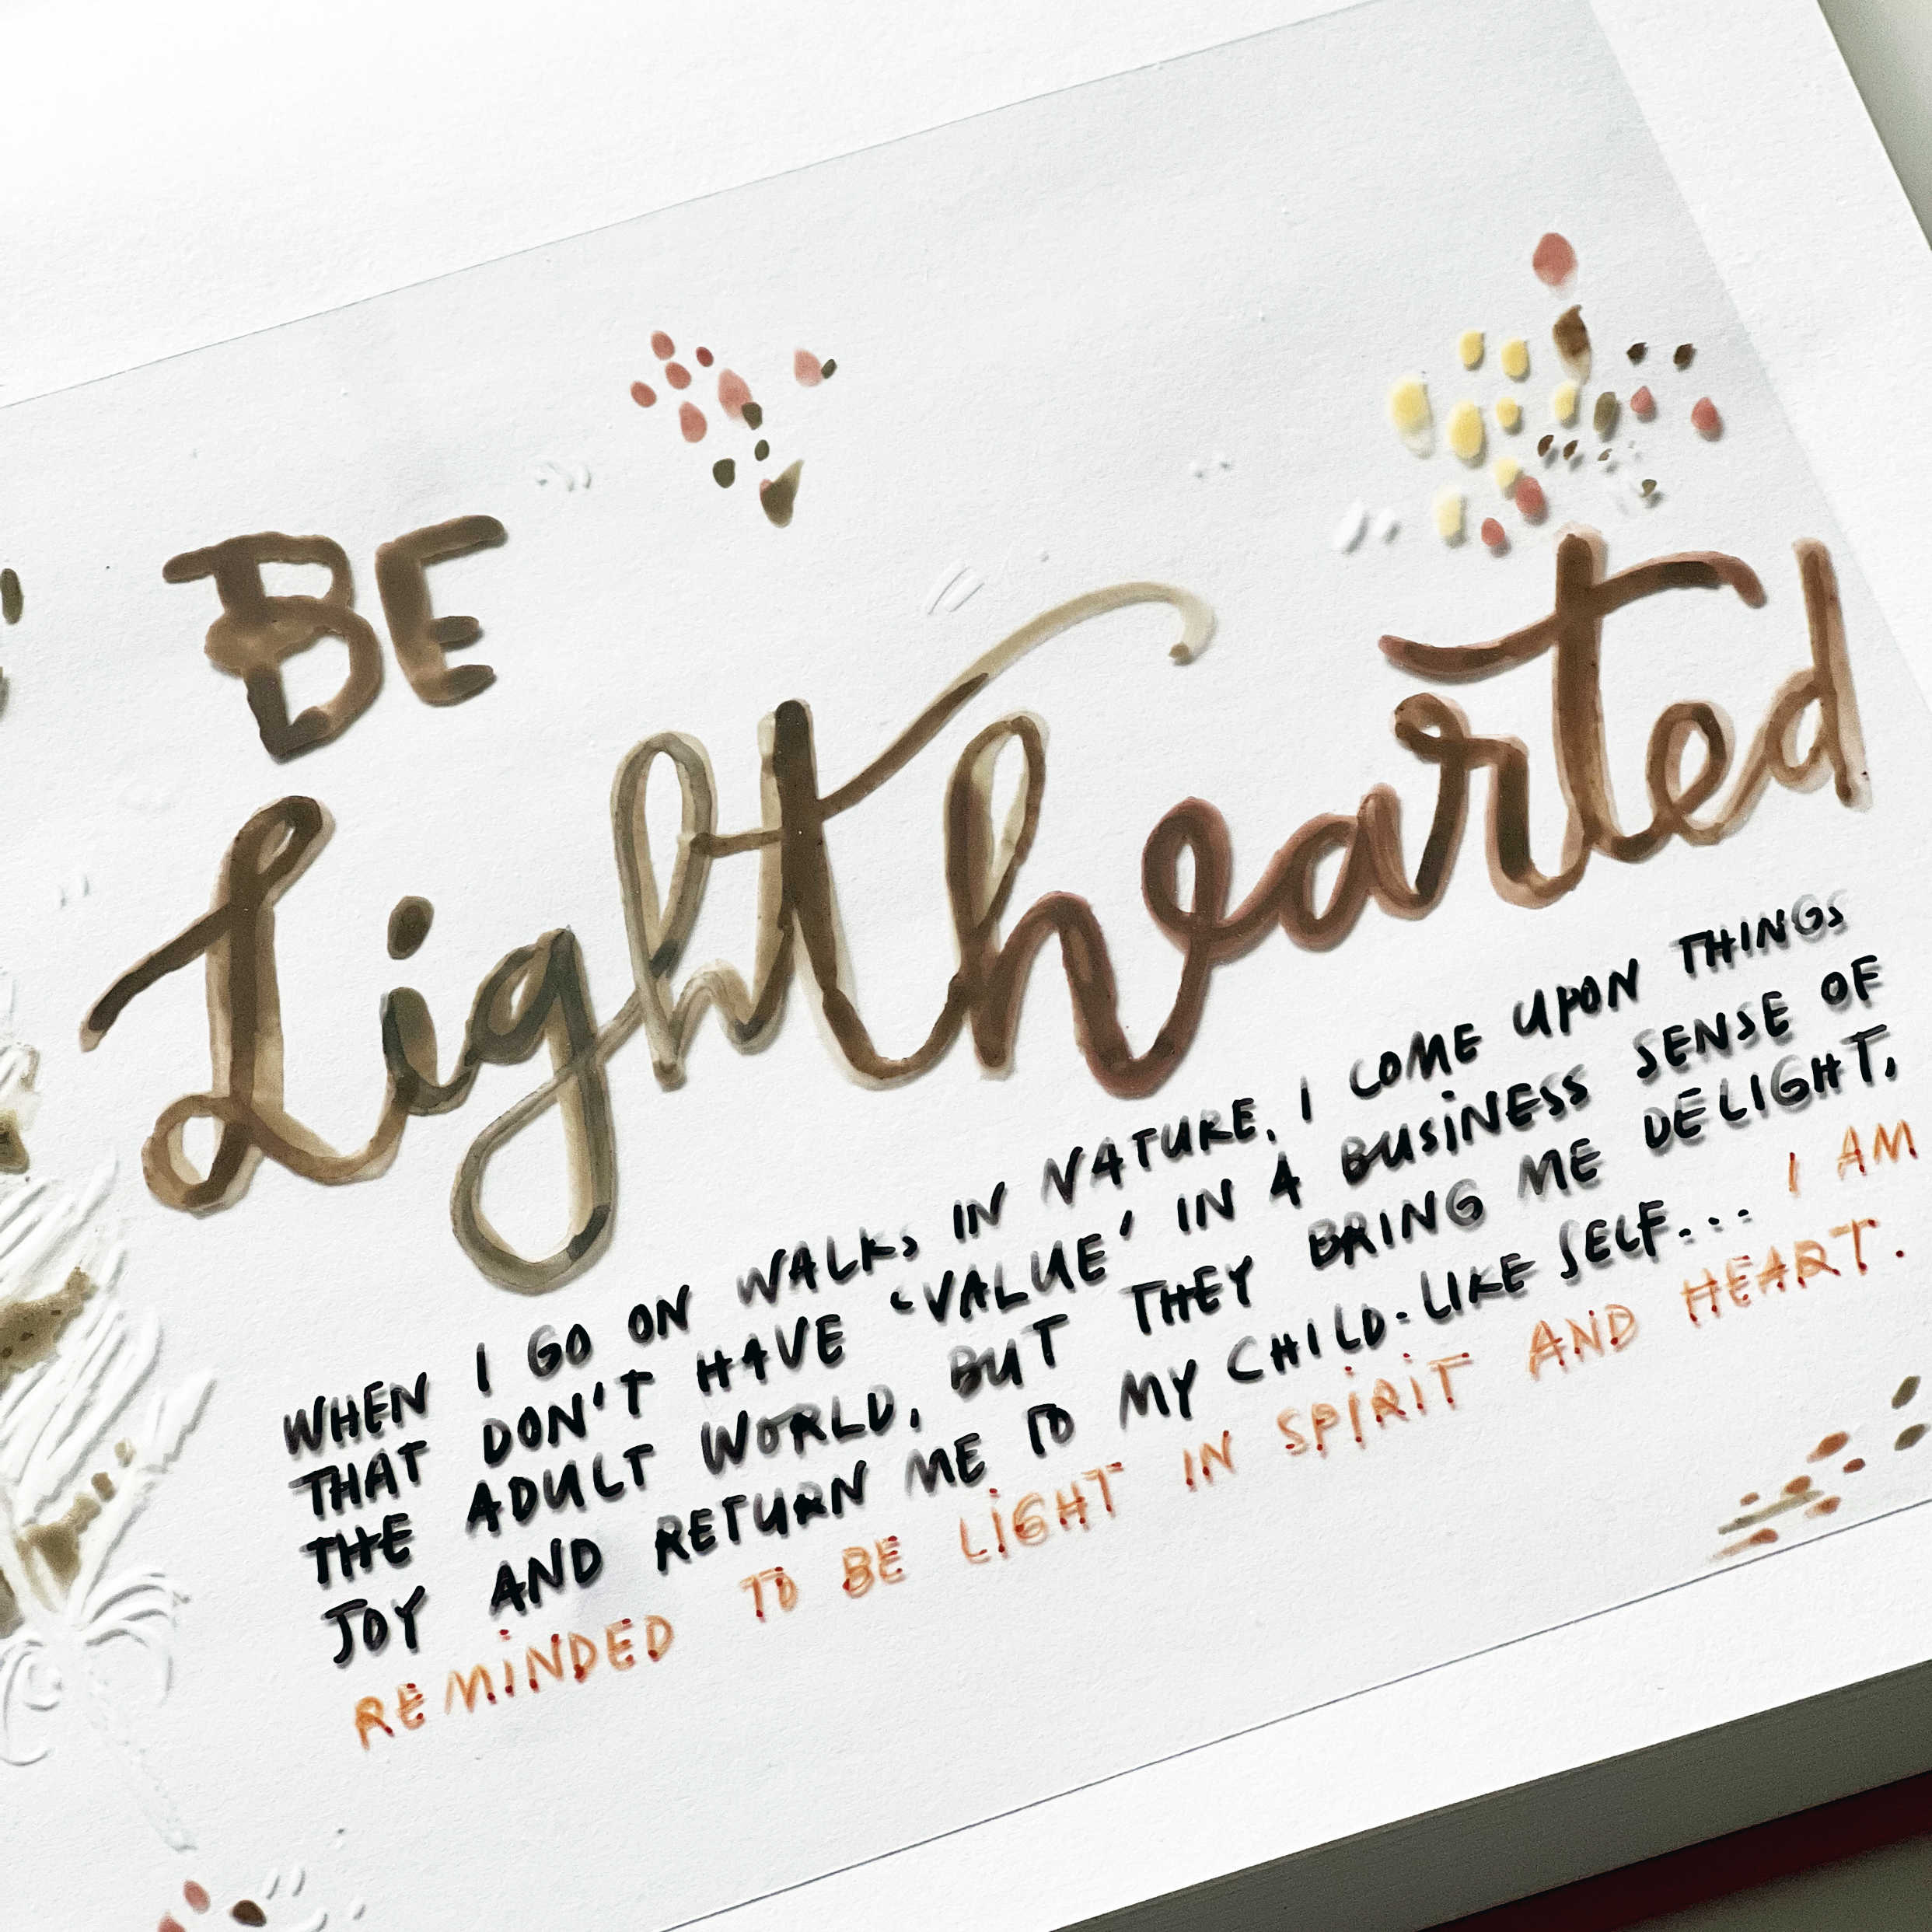 BE
Lighthearted
WHEN I GO ON WALKS IN NATURE, I COME UPON THINGS
THAT DON'T HAVE 'VALUE' IN A BUSINESS SENSE OF
THE ADULT WORLD, BUT THEY BRING ME DELIGHT,
JOY AND RETURN ME TO MY CHILD-LIKE SELF... I AM
REMINDED TO BE LIGHT IN SPIRIT AND HEART.